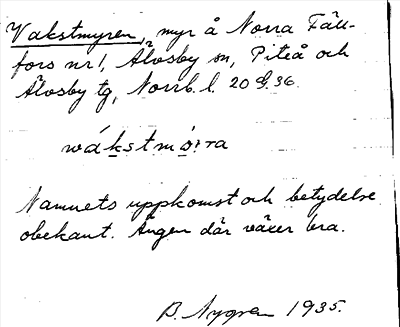 Vakstmyren, myr å Norra Fäll-
fors nr 1, Älvsby sn, Piteå och
Älvsby tg, Norrb. l. 20 36.
wákstm
Namnets uppkomst och betydelse
obekant. Ängen där växer bra.
B. Nygren 1935.